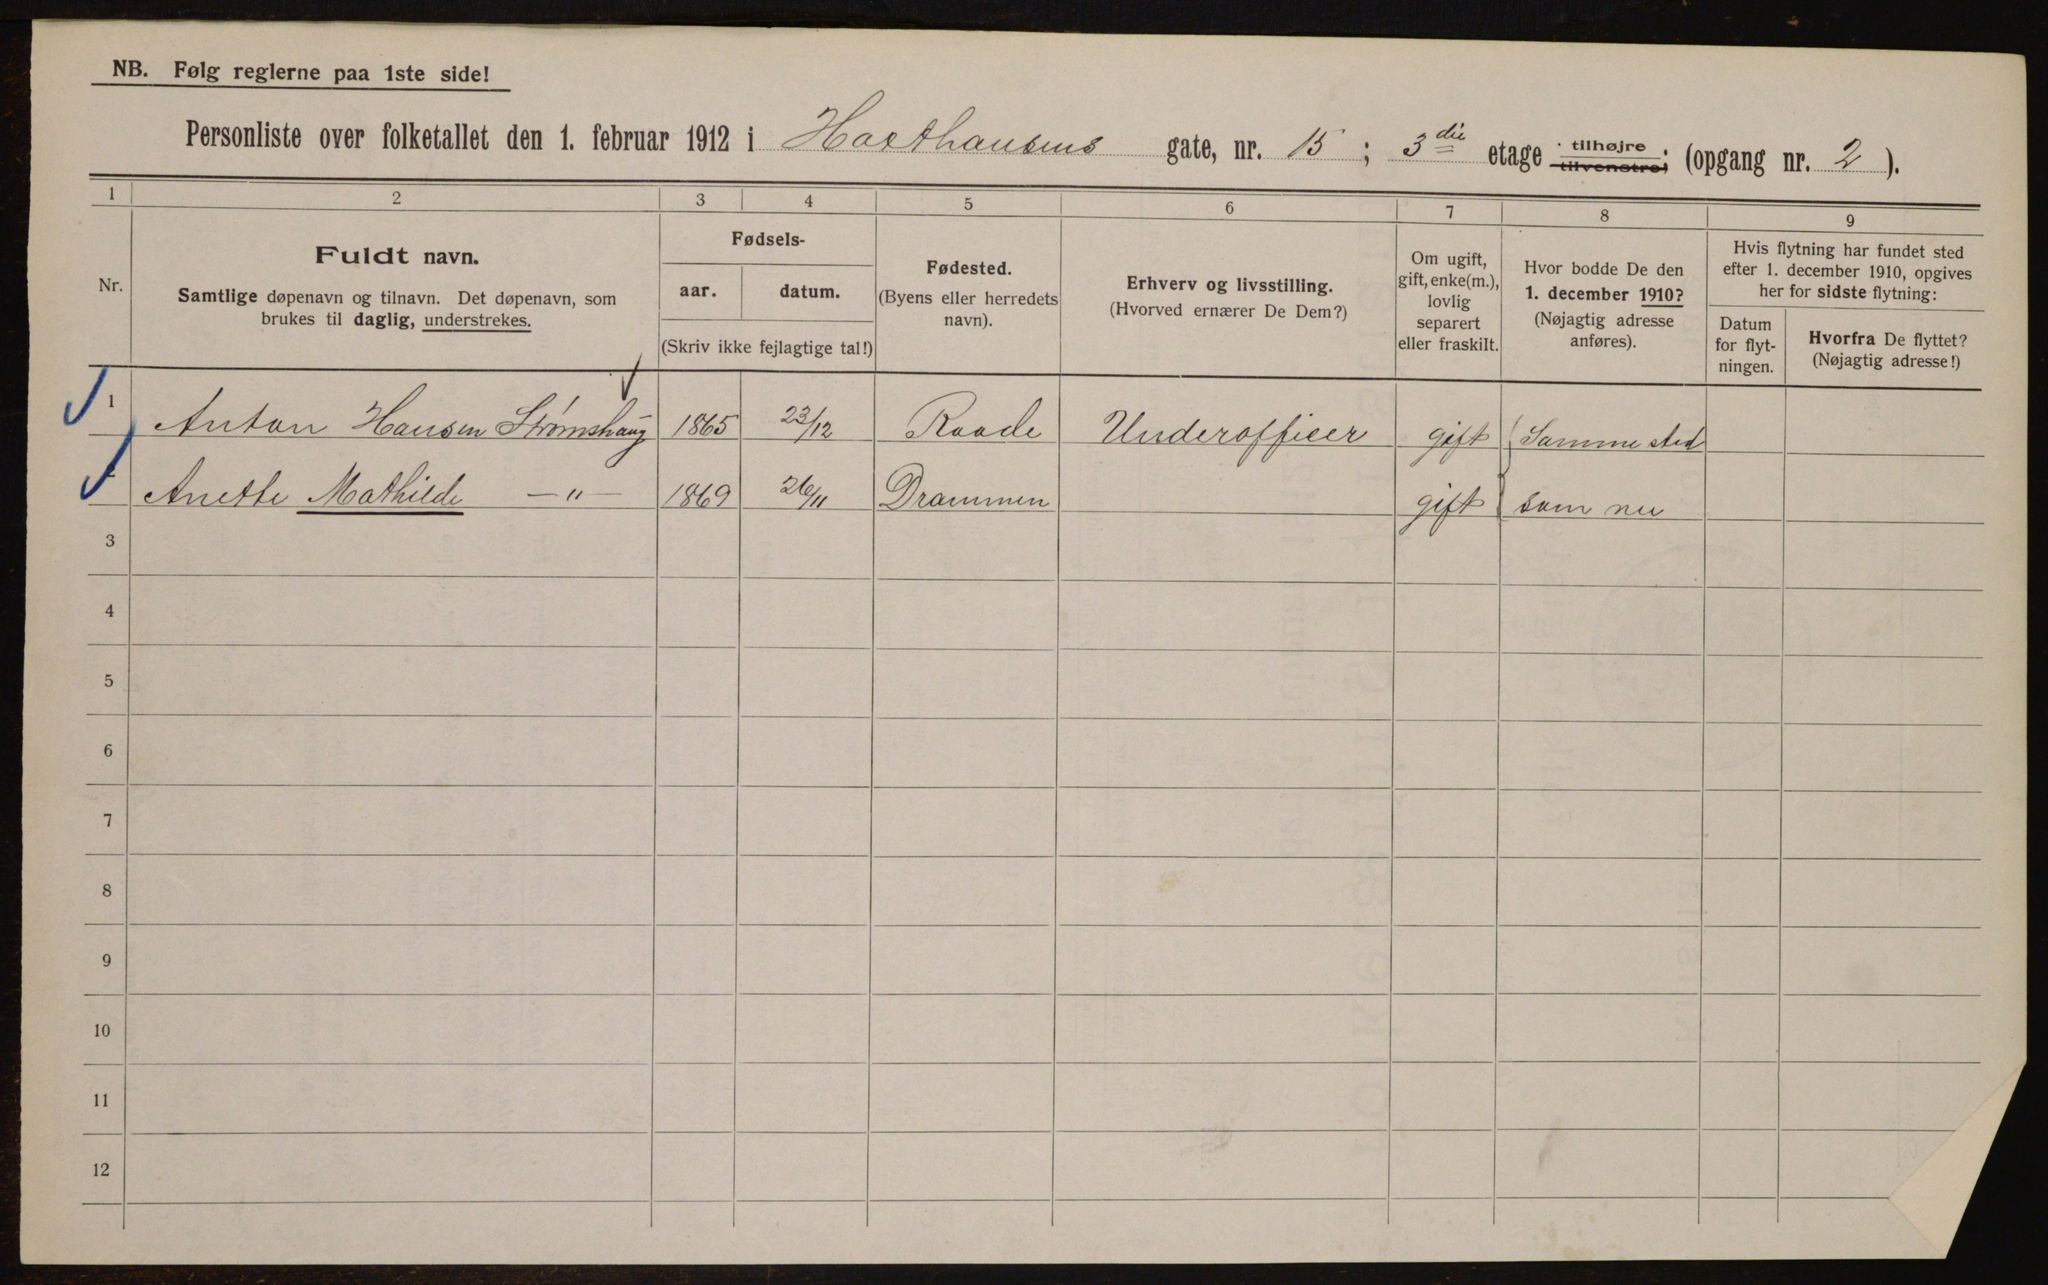 NB. Følg reglerne paa 1ste side!
Personliste over folketallet den 1. februar 1912 i Haxthausens gate, nr. 15; 3die etage tilhøjre tilvenstre; (opgang nr. 2).
1 2 3 4 5 6 7 8 9
Nr.
Fuldt navn.
Samtlige døpenavn og tilnavn. Det døpenavn, som
brukes til daglig, understrekes.
Fødsels-
aar. datum.
(Skriv ikke fejlagtige tal!)
Fødested.
(Byens eller herredets
navn).
Erhverv og livsstilling.
(Hvorved ernærer De Dem?)
Om ugift,
gift, enke(m.),
lovlig
separert
eller fraskilt.
Hvor bodde De den
1. december 1910?
(Nøjagtig adresse
anføres).
Hvis flytning har fundet sted
efter 1. december 1910, opgives
her for sidste flytning:
Datum
for flyt-
ningen.
Hvorfra De flyttet?
(Nøjagtig adresse!)
1 Anton Hansen Strømshaug 1865 23/12 Raade Underofficer gift Samme sted
2 Anette Mathilde —"— 1869 26/11 Drammen gift som nu
3
4
5
6
7
8
9
10
11
12